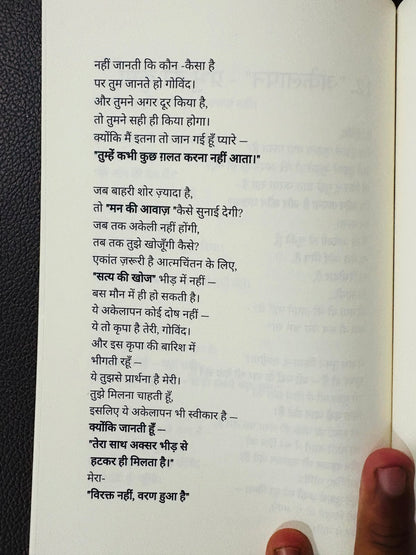 नहीं जानती कि कौन -कैसा है
पर तुम जानते हो गोविंद।
और तुमने अगर दूर किया है,
तो तुमने सही ही किया होगा।
क्योंकि मैं इतना तो जान गई हूँ प्यारे —
"तुम्हें कभी कुछ ग़लत करना नहीं आता।"
जब बाहरी शोर ज़्यादा है,
तो "मन की आवाज़ "कैसे सुनाई देगी?
जब तक अकेली नहीं होंगी,
तब तक तुझे खोजूँगी कैसे?
एकांत ज़रूरी है आत्मचिंतन के लिए,
"सत्य की खोज" भीड़ में नहीं —
बस मौन में ही हो सकती है।
ये अकेलापन कोई दोष नहीं —
ये तो कृपा है तेरी, गोविंद।
और इस कृपा की बारिश में
भीगती रहूँ —
ये तुझसे प्रार्थना है मेरी।
तुझे मिलना चाहती हूँ,
इसलिए ये अकेलापन भी स्वीकार है —
क्योंकि जानती हूँ —
"तेरा साथ अक्सर भीड़ से
हटकर ही मिलता है।"
मेरा-
"विरक्त नहीं, वरण हुआ है"